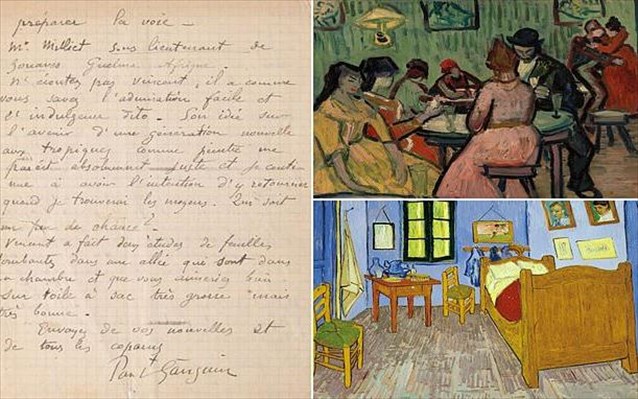 préparer la voie —
Mr Milliet sous lieutenant de
Zouaves Guelma Afrique.
N'écoutez pas Vincent, il a comme
vous savez l'admiration facile et
l'indulgence dito. Son idée sur
l'avenir d'une génération nouvelle
aux tropiques comme peintre me
paraît absolument juste et je conti
nue à avoir l'intention d'y retourner
quand je trouverai les moyens. Qui sait
un peu de chance?
Vincent a fait deux études de feuilles
tombantes dans une allée qui sont dans
chambre et que vous aimeriez bien
sur toile à sac très grosse mais
très bonne.
Envoyez de vos nouvelles et
de tous les copains
Paul Gauguin